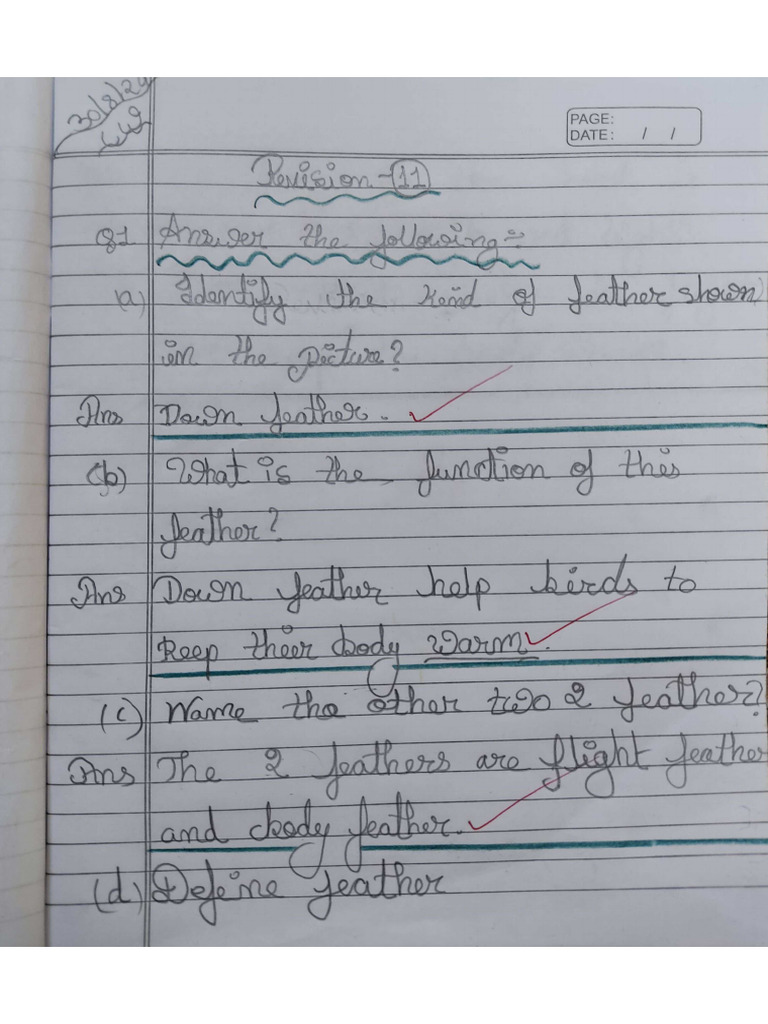 30/8/24
PAGE:
DATE: / /
Revision - 11
Q1 Answer the following :-
a) Identify the kind of feather shown
in the picture?
Ans Down feather.
(b) What is the function of this
feather?
Ans Down feather help birds to
keep their body warm.
(c) Name the other two 2 feather?
Ans The 2 feathers are flight feather
and body feather.
(d) Define feather